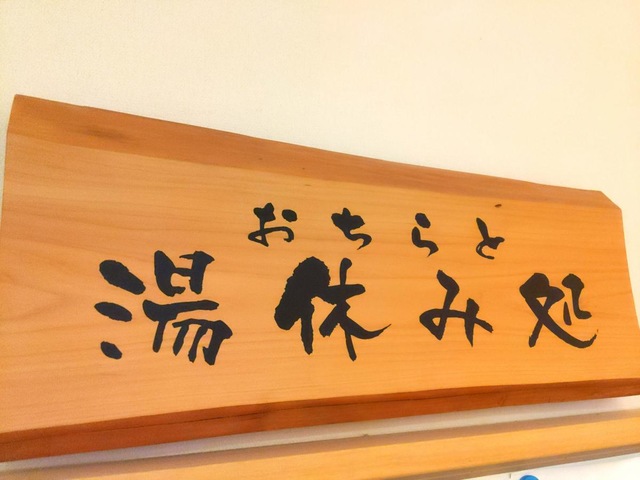 おちらと
湯休み処